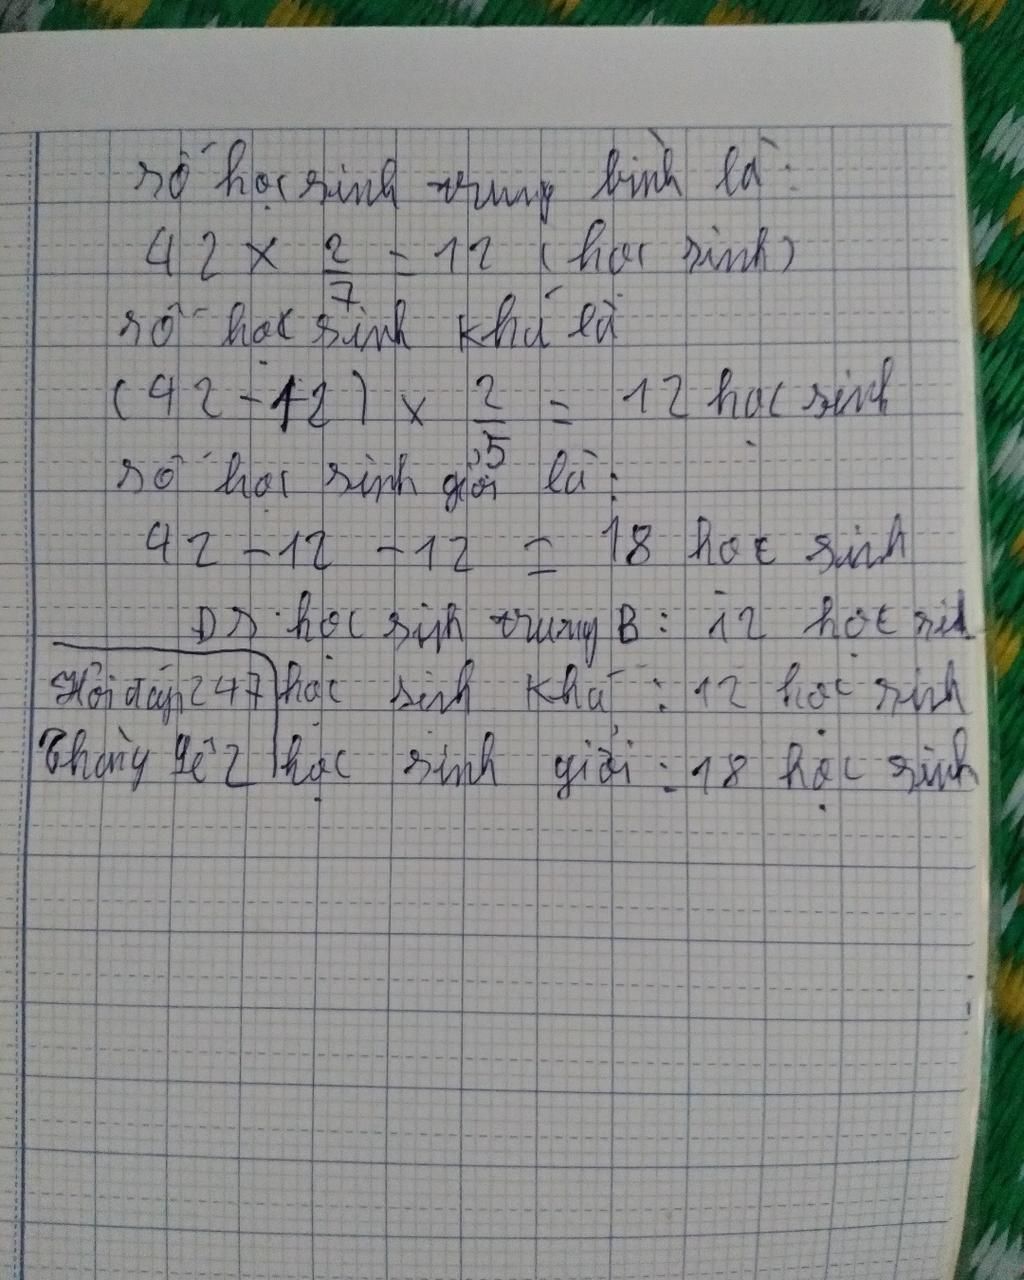 số học sinh trung bình là:
42 × 2/7 = 12 (học sinh)
số học sinh khá là
(42 - 12) × 2/5 = 12 học sinh
số học sinh giỏi là:
42 - 12 - 12 = 18 học sinh
DS: học sinh trung B: 12 học sinh
Hỏi đáp 247 học sinh khá: 12 học sinh
học sinh giỏi: 18 học sinh